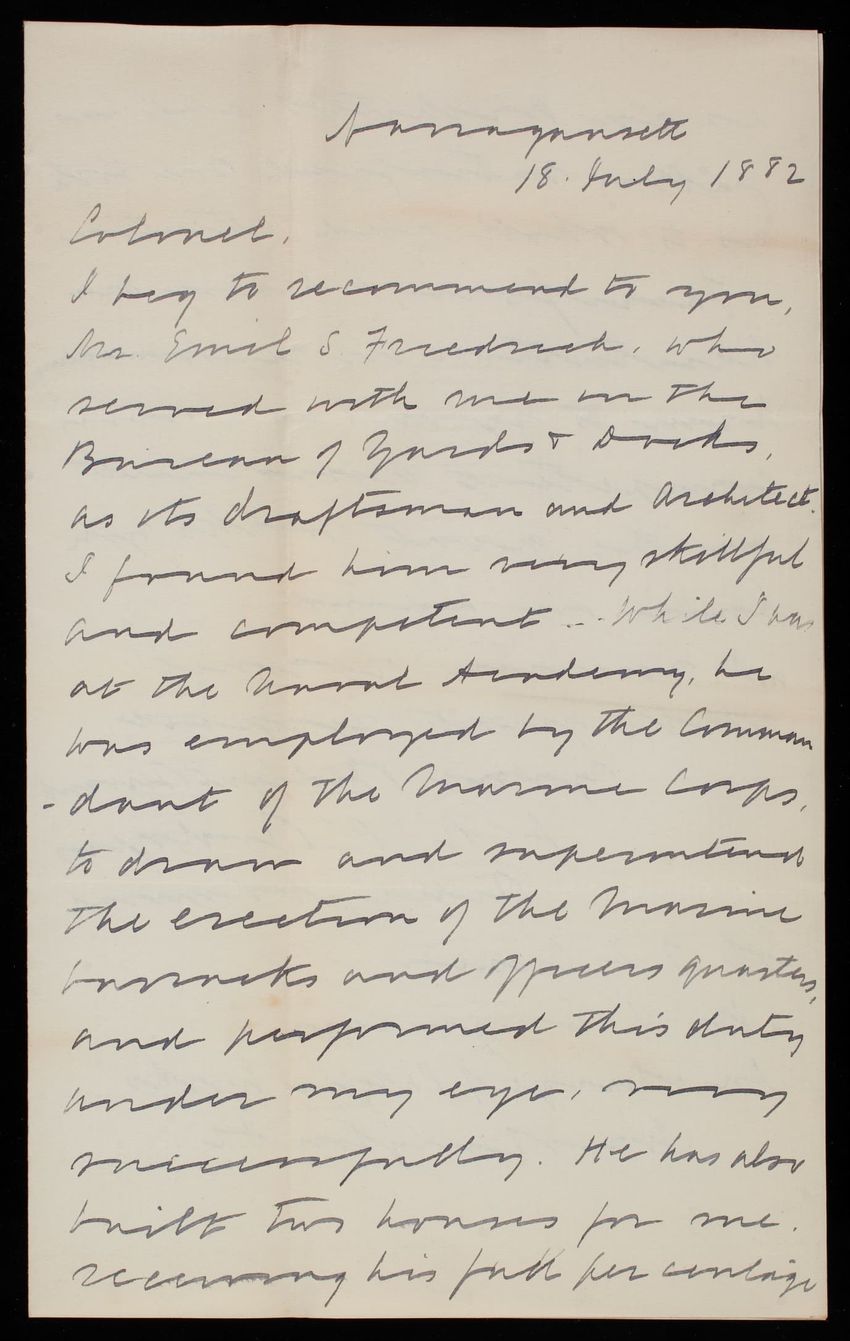 Narragansett
18. July 1882
Colonel.
I beg to recommend to you,
Mr. Emil S. Friedrich, who
served with me in the
Bureau of Yards & Docks,
as its draftsman and Architect.
I found him very skillful
and competent -.. While I was
at the Naval Academy, he
was employed by the Comman
-dant of the Marine Corps,
to draw and superintend
the erection of the Marine
barracks and officers quarters,
and performed this duty
under my eye, very
successfully. He has also
built two houses for me.
receiving his full per centage